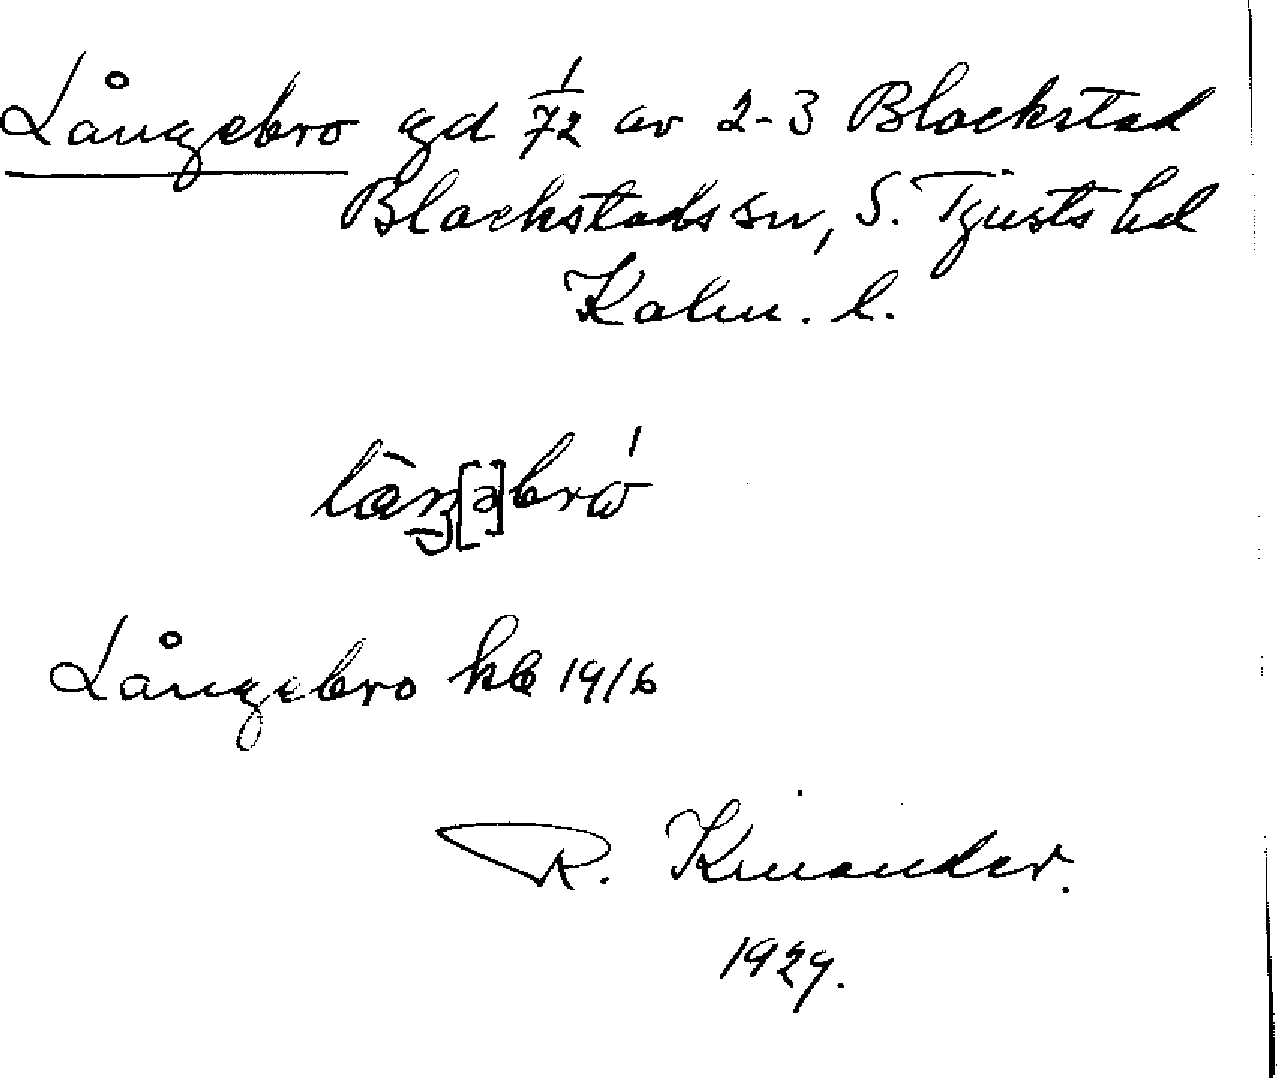 Långebro gd 1/72 av 2-3 Blackstad
Blackstads sn, S. Tjusts hd
Kalm. l.
Långebro kb 1916
R. Kinander.
1929.